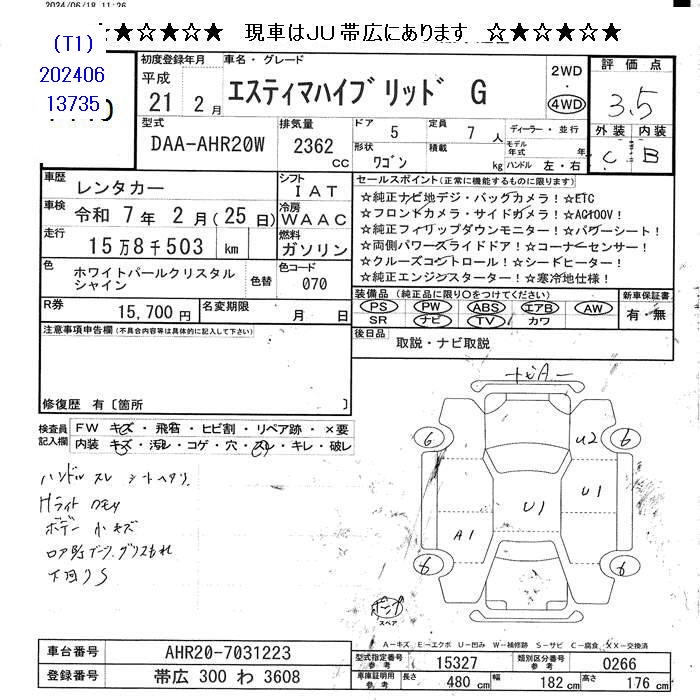 2024/06/18 11:26
★☆★☆★☆ 現車はJU帯広にあります ☆★☆★☆★
(T1)
202406
13735
初度登録年月
平成
21 2月
車名・グレード
エスティマハイブリッド G
2WD
・
4WD
評価点
3.5
外装 内装
C B
型式
DAA-AHR20W
排気量
2362
CC
ドア 5
定員 7 人
ディーラー・並行
形状
ワゴン
積載
kg
モデル年式
年
ハンドル 左・右
車歴
レンタカー
シフト
IAT
車検
令和 7年 2月(25日)
冷房
WAAC
走行
15万8千503 km
燃料
ガソリン
色
ホワイトパールクリスタル
シャイン
色替
色コード
070
R券
15,700円
名変期限
月 日
セールスポイント(正常に機能するものに限ります)
☆純正ナビ地デジ・バックカメラ!☆ETC
☆フロントカメラ・サイドカメラ!☆AC100V!
☆純正フィリップダウンモニター!☆パワーシート!
☆両側パワースライドドア!☆コーナーセンサー!
☆クルーズコントロール!☆シートヒーター!
☆純正エンジンスターター!☆寒冷地仕様!
装備品(純正品に限り〇をつけてください)
PS PW ABS エアB AW
SR ナビ TV カワ
新車保証書
有・無
後日品
取説・ナビ取説
注意事項申告欄(不具合内容等は具体的に記入して下さい)
修復歴 有〔箇所 〕
検査員
記入欄
FW キズ・飛石・ヒビ割・リペア跡・×要
内装 キズ・汚レ・コゲ・穴・スレ・キレ・破レ
ハンドル スレ シートヘタリ
Hライト クモリ
ボデー 小キズ
下回りS
6
U2
6
U1
U1
A1
6
6
スペア
A-キズ E-エクボ U-凹み W-補修跡 S-サビ C-腐食 XX-交換済
車台番号
AHR20-7031223
登録番号
帯広 300 わ 3608
型式指定番号
参考
15327
類別区分番号
参考
0266
車庫証明用
参考
長さ
480 cm
幅
182 cm
高さ
176 cm